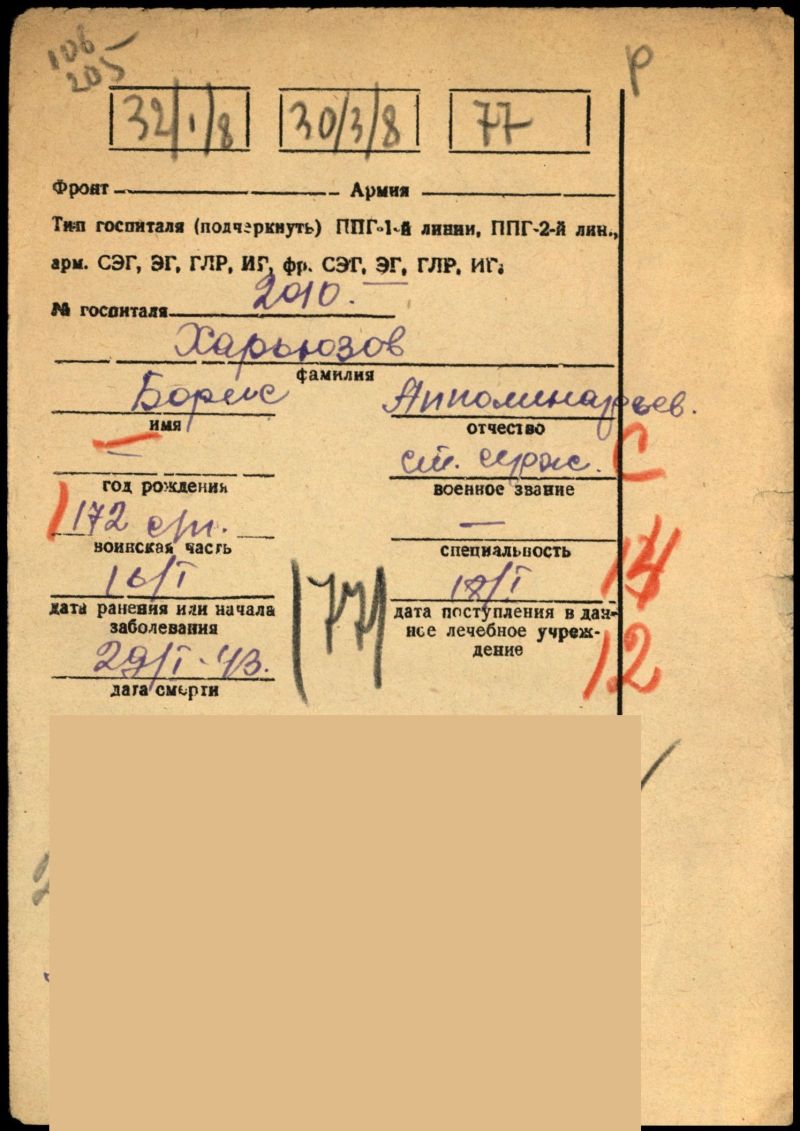 106
205
Р
32/1/8 30/3/8 77
Фронт Армия
Тип госпиталя (подчеркнуть) ППГ-1-й линии, ППГ-2-й лин.,
арм. СЭГ, ЭГ, ГЛР, ИГ, фр. СЭГ, ЭГ, ГЛР, ИГ.
№ госпиталя 2010.
Харьюзов
фамилия
Борис Апполинарьев.
имя отчество
ст. серж. С
год рождения военное звание
172 сп.
воинская часть специальность
16/I 18/I
дата ранения или начала заболевания
(77) дата поступления в данное лечебное учреждение
12
29/I-43.
дата смерти